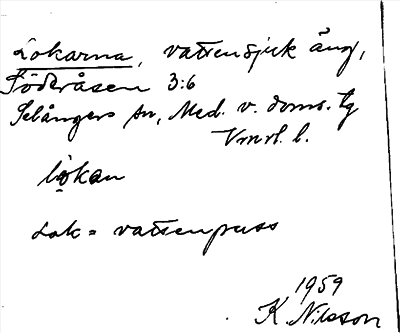 Lokarna, vattensjuk äng,
Söderåsen 3:6
Selångers sn, Med. v. doms. tg
Vmrl. l.
lo̤kan
Lok = vattenpuss
1959
K. Nilsson